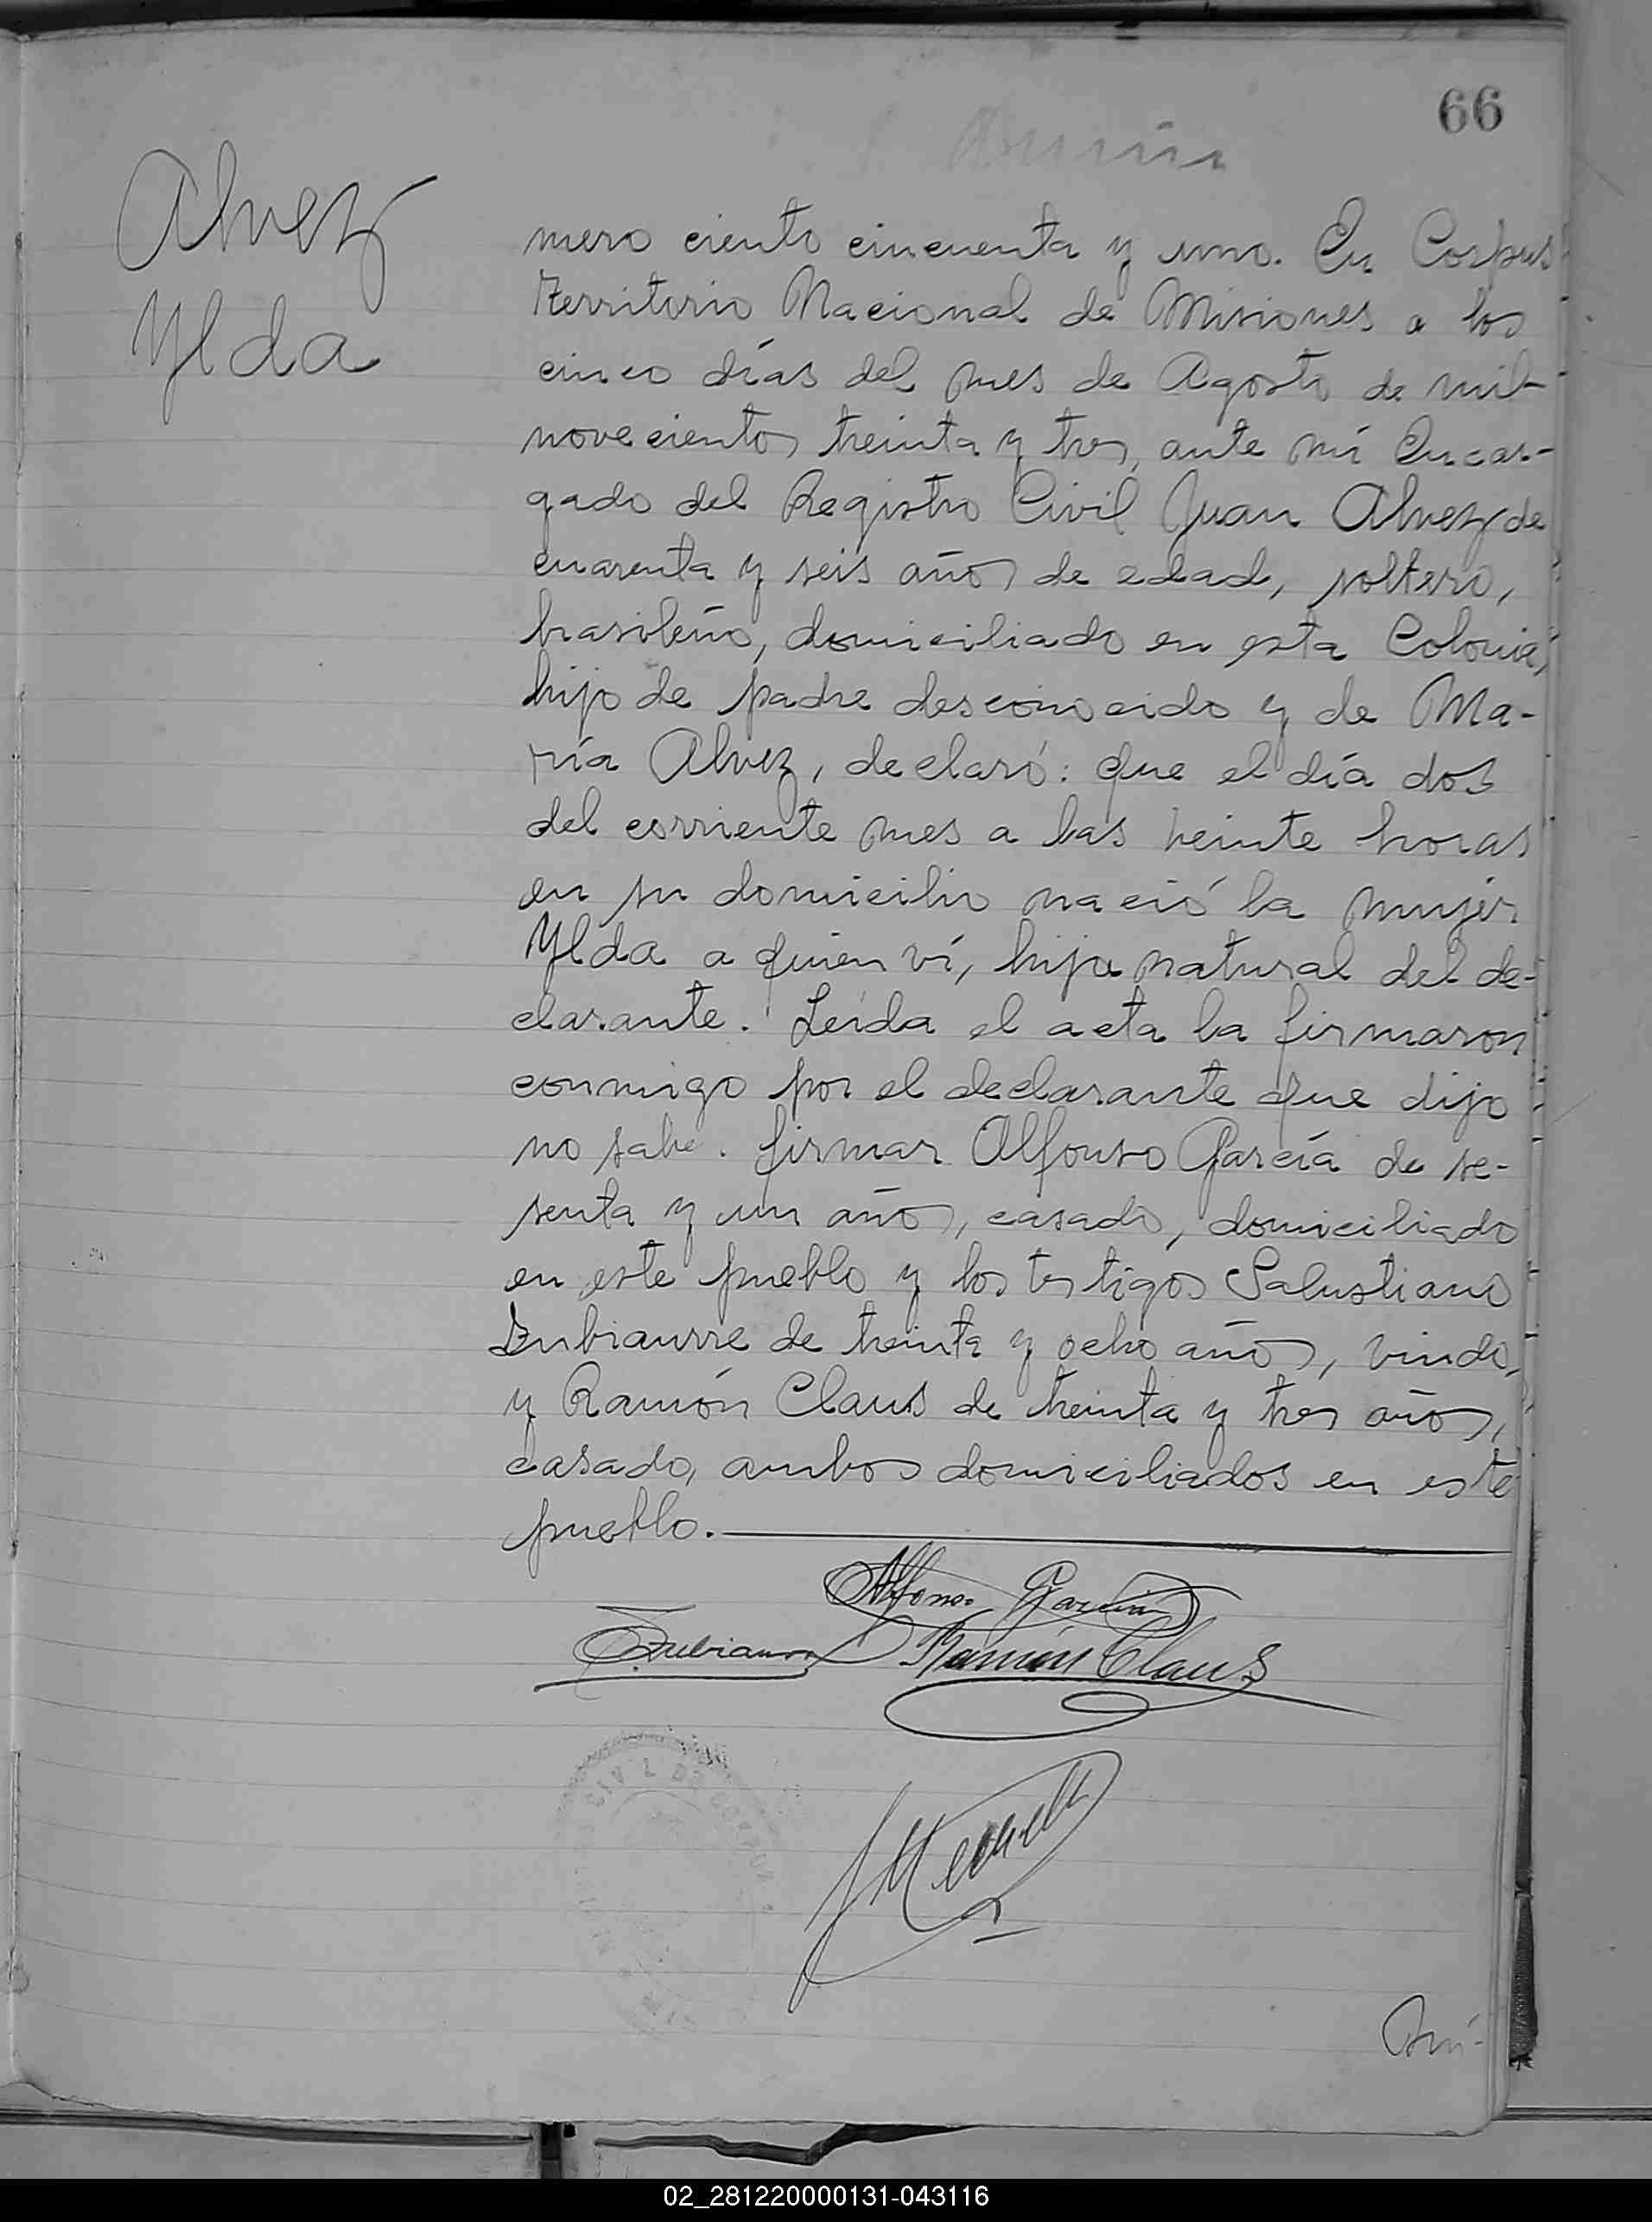 66
Alvez
Ylda
mero ciento cincuenta y uno. En Corpus
Territorio Nacional de Misiones a los
cinco días del mes de Agosto de mil
novecientos treinta y tres, ante mí Encar-
gado del Registro Civil Juan Alvez de
cuarenta y seis años de edad, soltero,
brasileño, domiciliado en esta Colonia,
hijo de padre desconocido y de Ma-
ría Alvez, declaró: que el día dos
del corriente mes a las veinte horas
en su domicilio nació la mujer
Ylda a quien ví, hija natural del de-
clarante. Leída el acta la firmaron
conmigo por el declarante que dijo
no sabe. firmar Alfonso García de se-
senta y un años, casado, domiciliado
en este pueblo y los testigos Salustiano
Zubiaurre de treinta y ocho años, viudo,
y Ramón Claus de treinta y tres años,
casado, ambos domiciliados en este
pueblo.
Alfonso García
Ramón Claus
Nú-
02_281220000131-043116